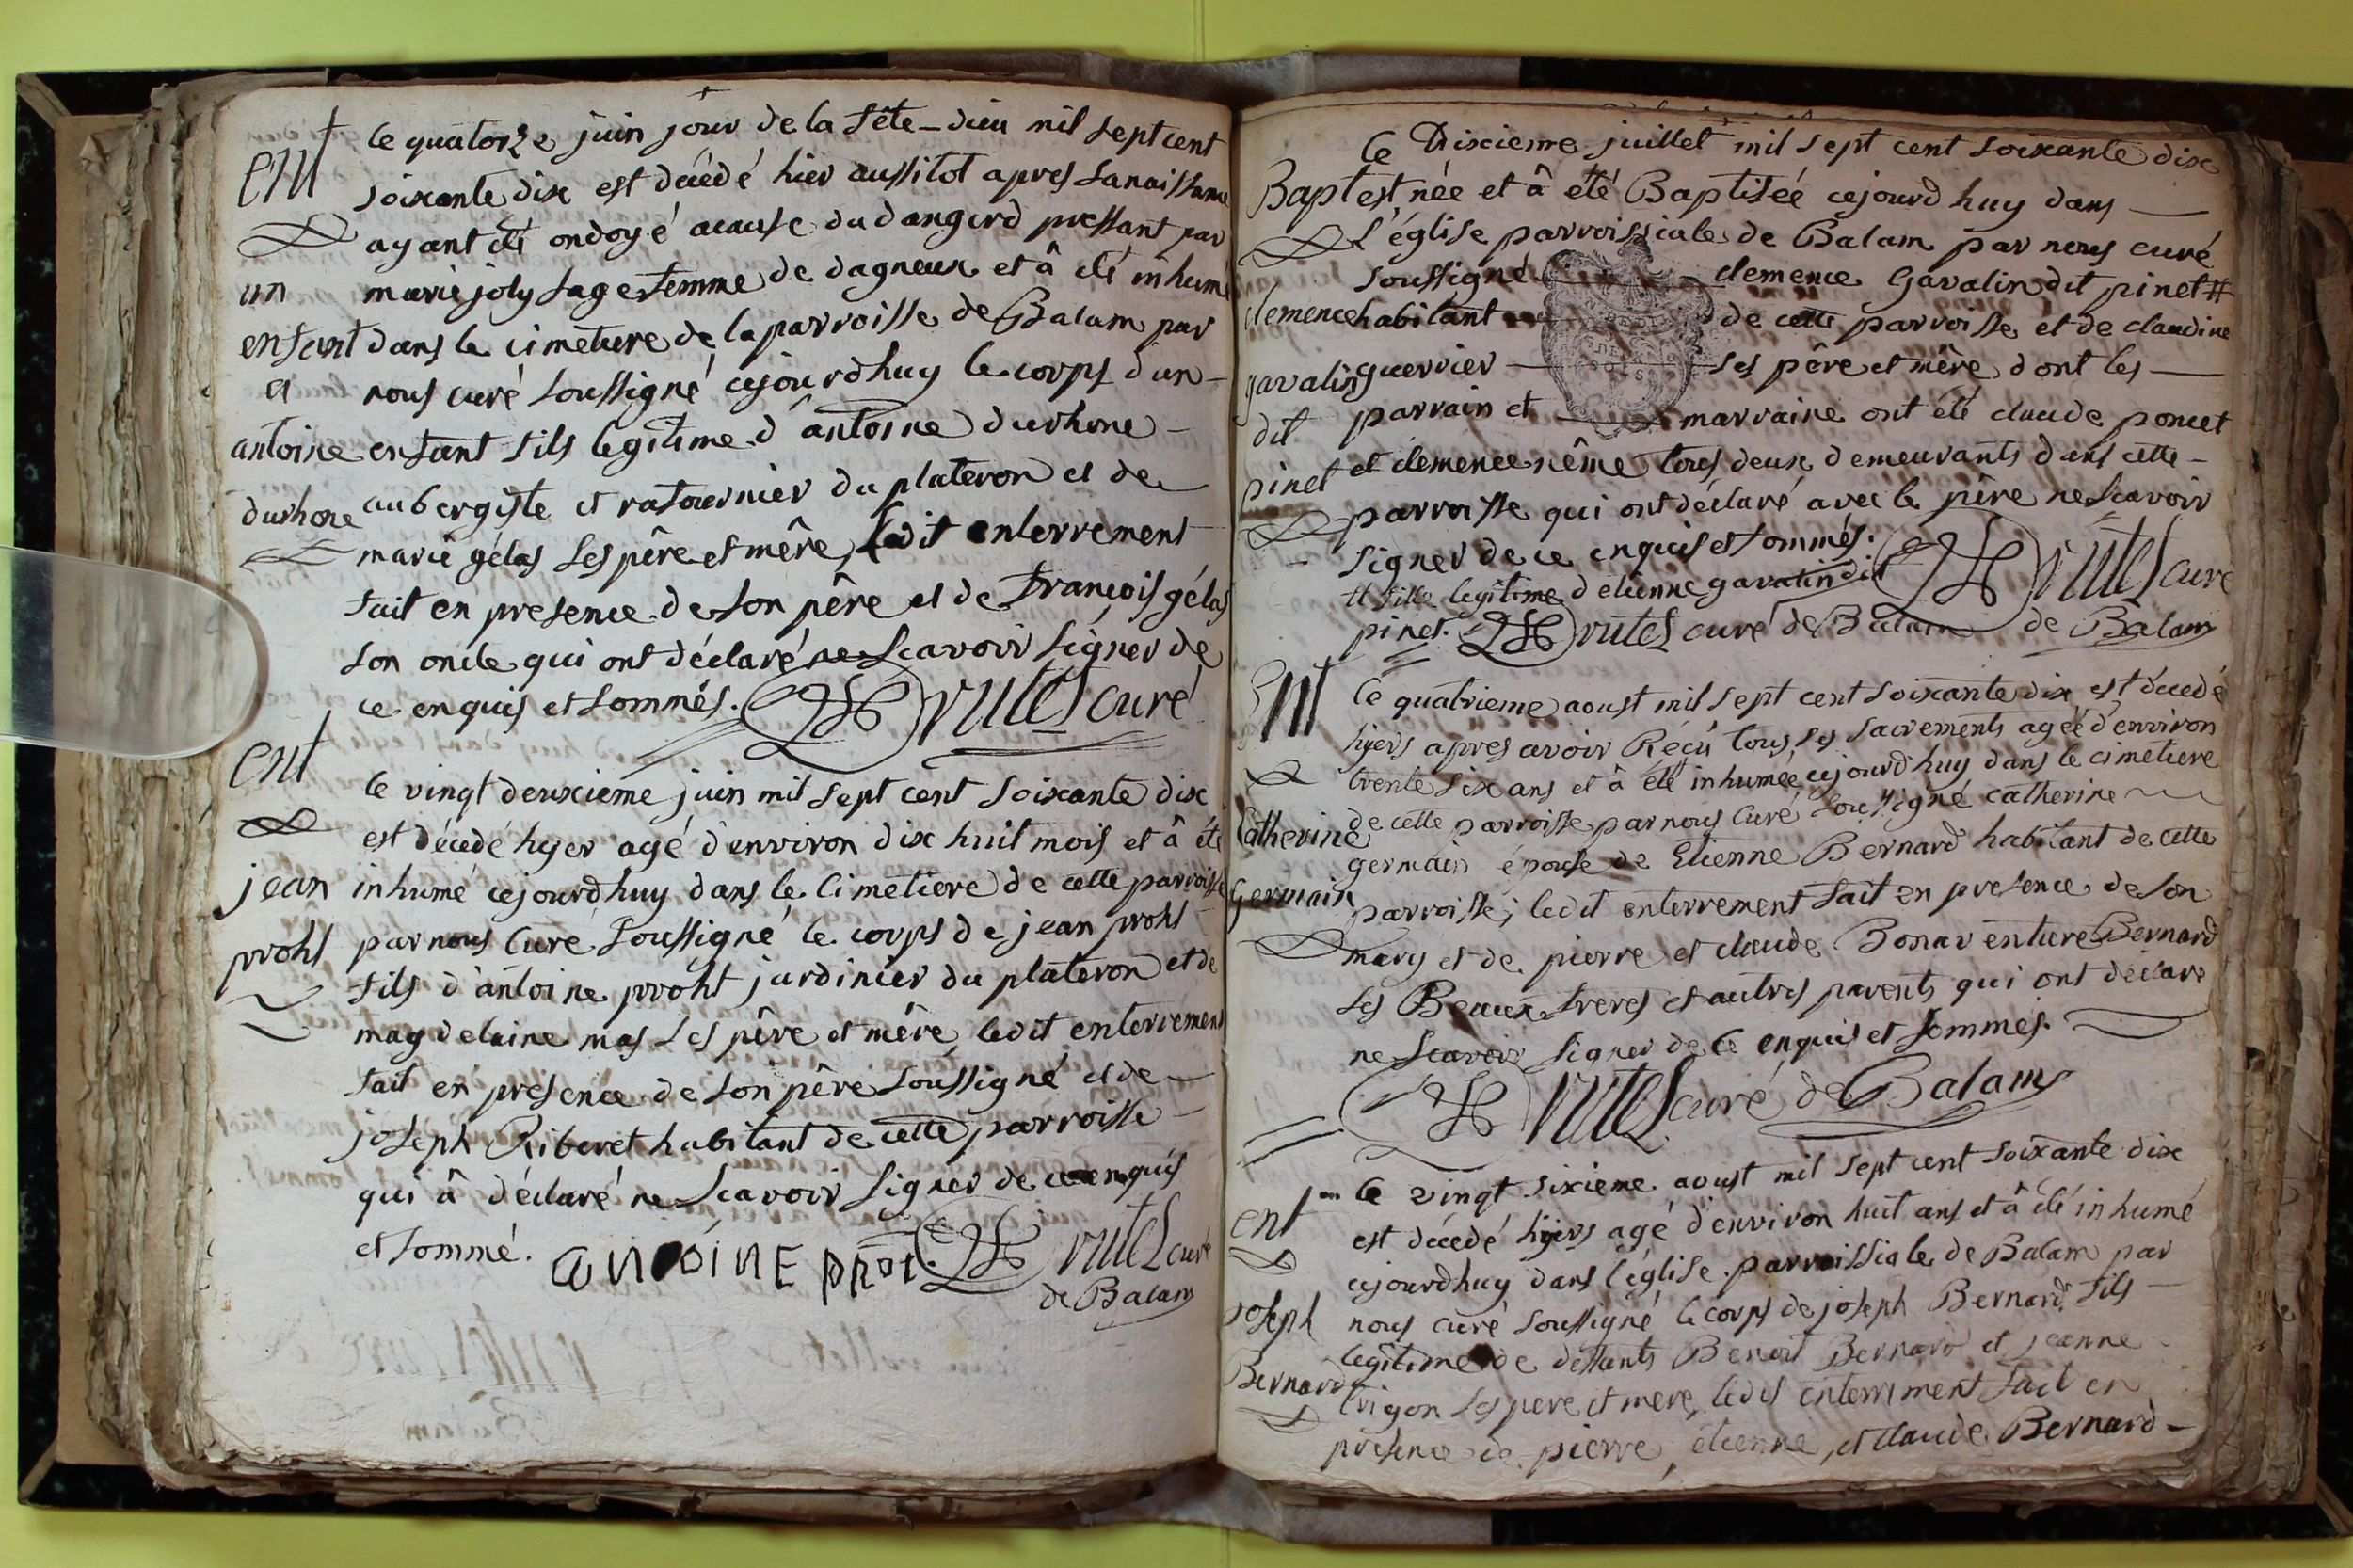 le quatorze juin jour de la fête-dieu mil sept cent
ent
soixante dix est décédé hier aussitot apres sa naissance
ayant été ondoyé acause du dangerd pressant par
un
marie joly sage femme de dagneux et â été inhumé
enfant dans le cimetiere de la parroisse de Balam par
a nous curé soussigné cejourdhuy le corps d'un
antoine enfant fils legitime d'antoine durhone
durhone aubergiste et rafournier du plateron et de
marie gélas ses pêre et mêre, ledit enterrement
fait en presence de son pêre et de françois gélas
son oncle qui ont déclaré ne scavoir signer de
ce enquis et sommés. rutes curé
ent
le vingt deuxieme juin mil sept cent soixante dix
est décédé hyer agé d'environ dix huit mois et â été
jean inhumé cejourdhuy dans le cimetiere de cette parroisse
proht par nous Curé soussigné le corps de jean proht
fils d'antoine proht jardinier du plateron et de
magdelaine mas ses pêre et mêre, ledit enterrement
fait en presence de son pêre soussigné et de
joseph Riberet habitant de cette parroisse
qui â déclaré ne scavoir signer de ce enquis
et sommé. antoinE prot. rutes curé
de Balam
Le Dixieme juillet mil sept cent soixante dix
Bapt est née et â été Baptisée cejourdhuy dans
L'église parroissiale de Balam par nous curé
soussigné clemence Gavalin dit pinet #
clemence habitant de cette parroisse et de claudine
gavalin guerrier ses pêre et mêre dont les
dit parrain et marraine ont été claude poncet
pinet et clemence nême tous deux demeurants dans cette
parroisse qui ont déclaré avec le pêre ne scavoir
signer de ce enquis et sommés. rutes curé
# fille legitime d'etienne gavalin dit
pinet. rutes curé de Balam de Balam
Ent Le quatrieme aoust mil sept cent soixante dix est décedé
hyers apres avoir Reçu tous ses sacrements agée d'environ
trente six ans et â été inhumée cejourd'huy dans le cimetiere
de cette parroisse par nous Curé soussigné catherine
Catherine
germain épouse de Etienne Bernard habitant de cette
Germain
parroisse; ledit enterrement fait en presence de son
mary et de pierre et claude Bonaventure Bernard
ses Beaux freres et autres parents qui ont déclaré
ne scavoir signer de ce enquis et sommés.
rutes curé de Balam
ent Le vingt sixieme aoust mil sept cent soixante dix
est décedé hyers agé d'environ huit ans et â été inhumé
cejourdhuy dans l'église parroissiale de Balam par
joseph nous curé soussigné le corps de joseph Bernard fils
legitime de deffunts Benoit Bernard et jeanne
Bernard trigon ses pere et mere, ledit enterrement fait en
presence de pierre, etienne, et claude Bernard